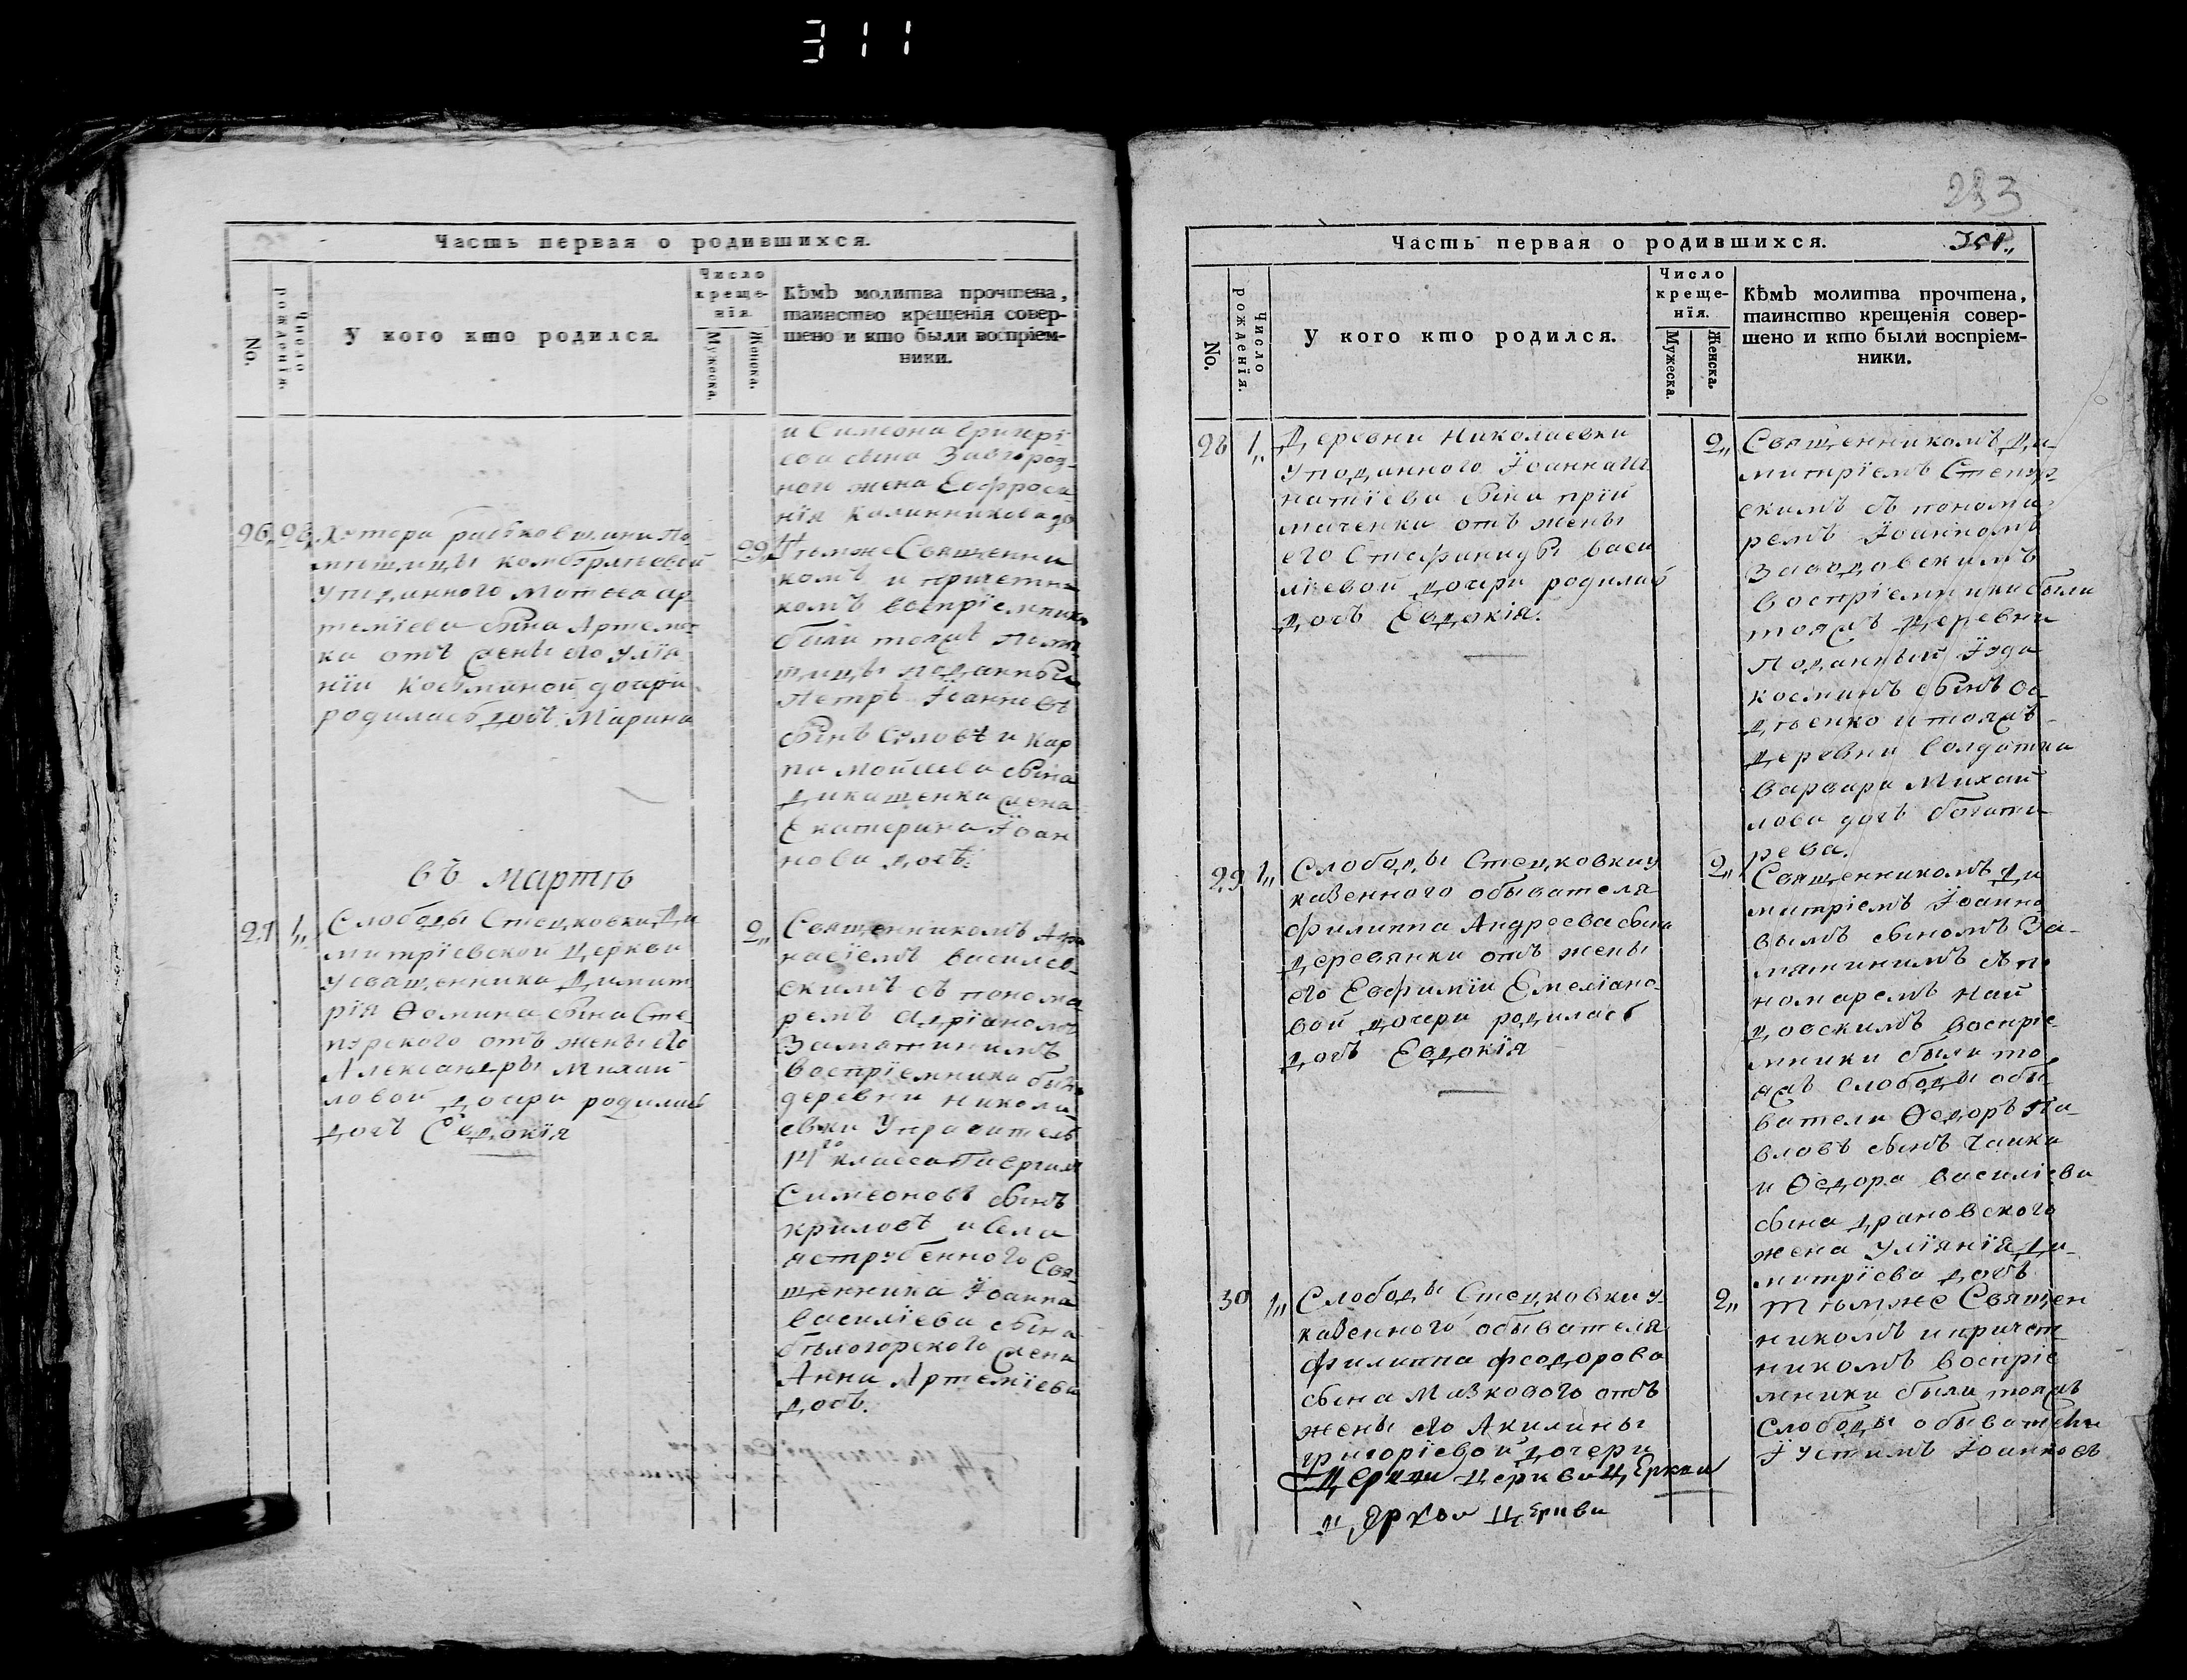 311
Часть первая о родившихся.
No.
Число рожденія.
У кого кто родился.
Число
креще-
нія.
Мужеска.
Женска.
Кѣмъ молитва прочтена,
таинство крещенія совер-
шено и кто были воспріем-
ники.
и Симеона Григорі
ева сына Завгород
ного жена Евфроси
нія Калинникова до
26, 28,
Хутора По
мѣщицы
Подданного Матвея Ар
теміева сына Артемен
ка отъ жены его Улія
ніи Косминой дочери
родилась дочь Марина
29,
Тѣмже Священни
комъ и причетни
комъ воспріемники
были тояжъ Помѣ
щицы подданныи
Петръ Іоанновъ
сынъ и Кар
па Мойсеева сына
жена
Екатерина Іоан
нова дочь.
въ мартѣ
27 1,,
Слободы Стецковки Ди
митріевской Церкви
У священника Димит
рія Ѳомина сына Сте
пурского отъ жены его
Александры Михай
ловой дочери родилась
дочь Евдокія
2,,
Священникомъ Афа
насіемъ Василев
скимъ съ понома
ремъ Адріаномъ
Замятинимъ
Воспріемники были
деревни Никола
евки Управитель
14го класса
Симеоновъ сынъ
Криловъ и Села
Яструбенного Свя
щенника Іоанна
Василіева сына
Бѣлогорского жена
Анна Артеміева
дочь.
283
301,,
Часть первая о родившихся.
No.
Число рожденія.
У кого кто родился.
Число
креще-
нія.
Мужеска.
Женска.
Кѣмъ молитва прочтена,
таинство крещенія совер-
шено и кто были воспріем-
ники.
28 1,,
Деревни Николаевки
У подданного Іоанна Иг
натіева сына Прій
маченка отъ жены
его Стефаниды Васи
ліевой дочери родилась
дочь Евдокія.
2,,
Священникомъ Ди
митріемъ Степур
скимъ съ понома
ремъ Іоанномъ
Заводовскимъ
Воспріемники были
тояжъ Деревни
Подданный Іуда
Косминъ сынъ
и тояжъ
деревни Солдатка
Варвара Михай
лова дочь Богати
рева.
29 1,,
Слободы Стецковки у
казенного обывателя
Филиппа Андреева сына
Деревянки отъ жены
его Евфиміи Емеліано
вой дочери родилась
дочь Евдокія
2,,
Священникомъ Ди
митріемъ Іоанно
вымъ сыномъ За
мятинимъ съ по
номаремъ Най
довскимъ воспріе
мники были то
яжъ Слободы обы
ватели Ѳедоръ Па
вловъ сынъ Чайка
и Ѳедора Василіева
сына Драновского
жена Уліянія Ди
митріева дочь
30 1,,
Слободы Стецковки у
казенного обывателя
Филиппа Феодорова
сына Мазкового отъ
жены его Акилины
Григоріевой дочери
Церкви Церкви Церкви
Церкви Церкви
2,,
Тѣмже Священ
никомъ и причет
никомъ воспріе
мники были тояжъ
Слободы обыватели
Іустинъ Іоанновъ